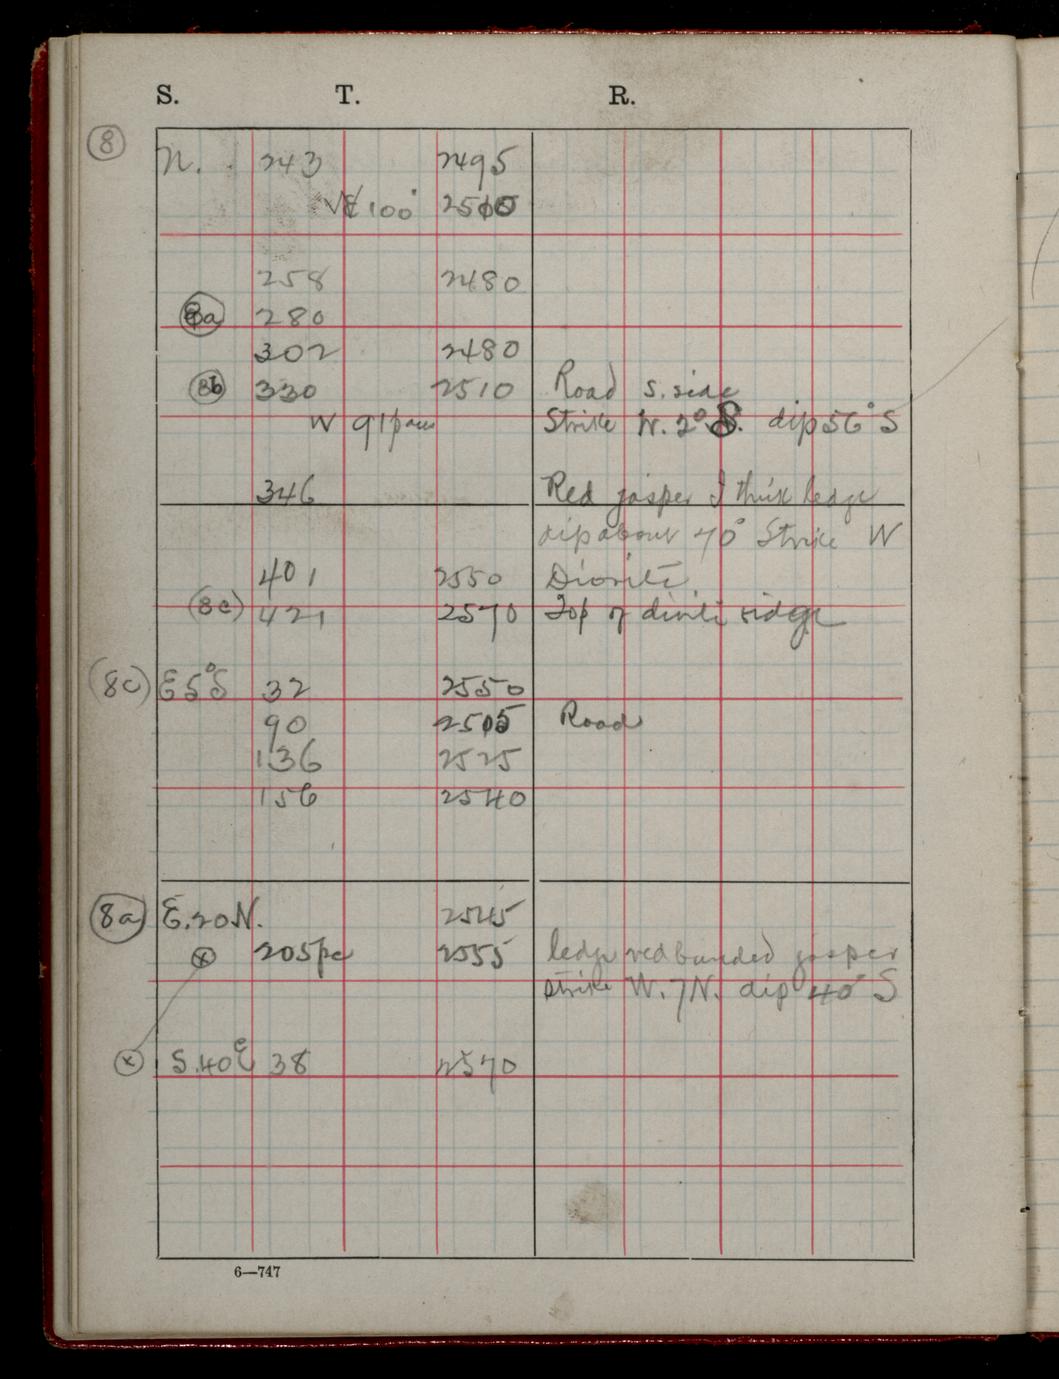 S. T. R.
8 N. 243 2495
100° 2510
258 2480
8a 280
302 2480
8b 330 2510 Road S. side
W 91 paces Strike W. 2° S. dip 56° S
346 Red jasper I think ledge
dip about 70° Strike W
401 2550 Diorite
(8c) 421 2570 Top of diorite ridge
(8c) E 5° S 32 2550
90 2505 Road
136 2525
156 2540
8a E. 20 N. 2545
x 205 pc 2555 ledge red banded jasper
strike W. 7 N. dip 40° S
x S. 40 E 38 2570
6—747